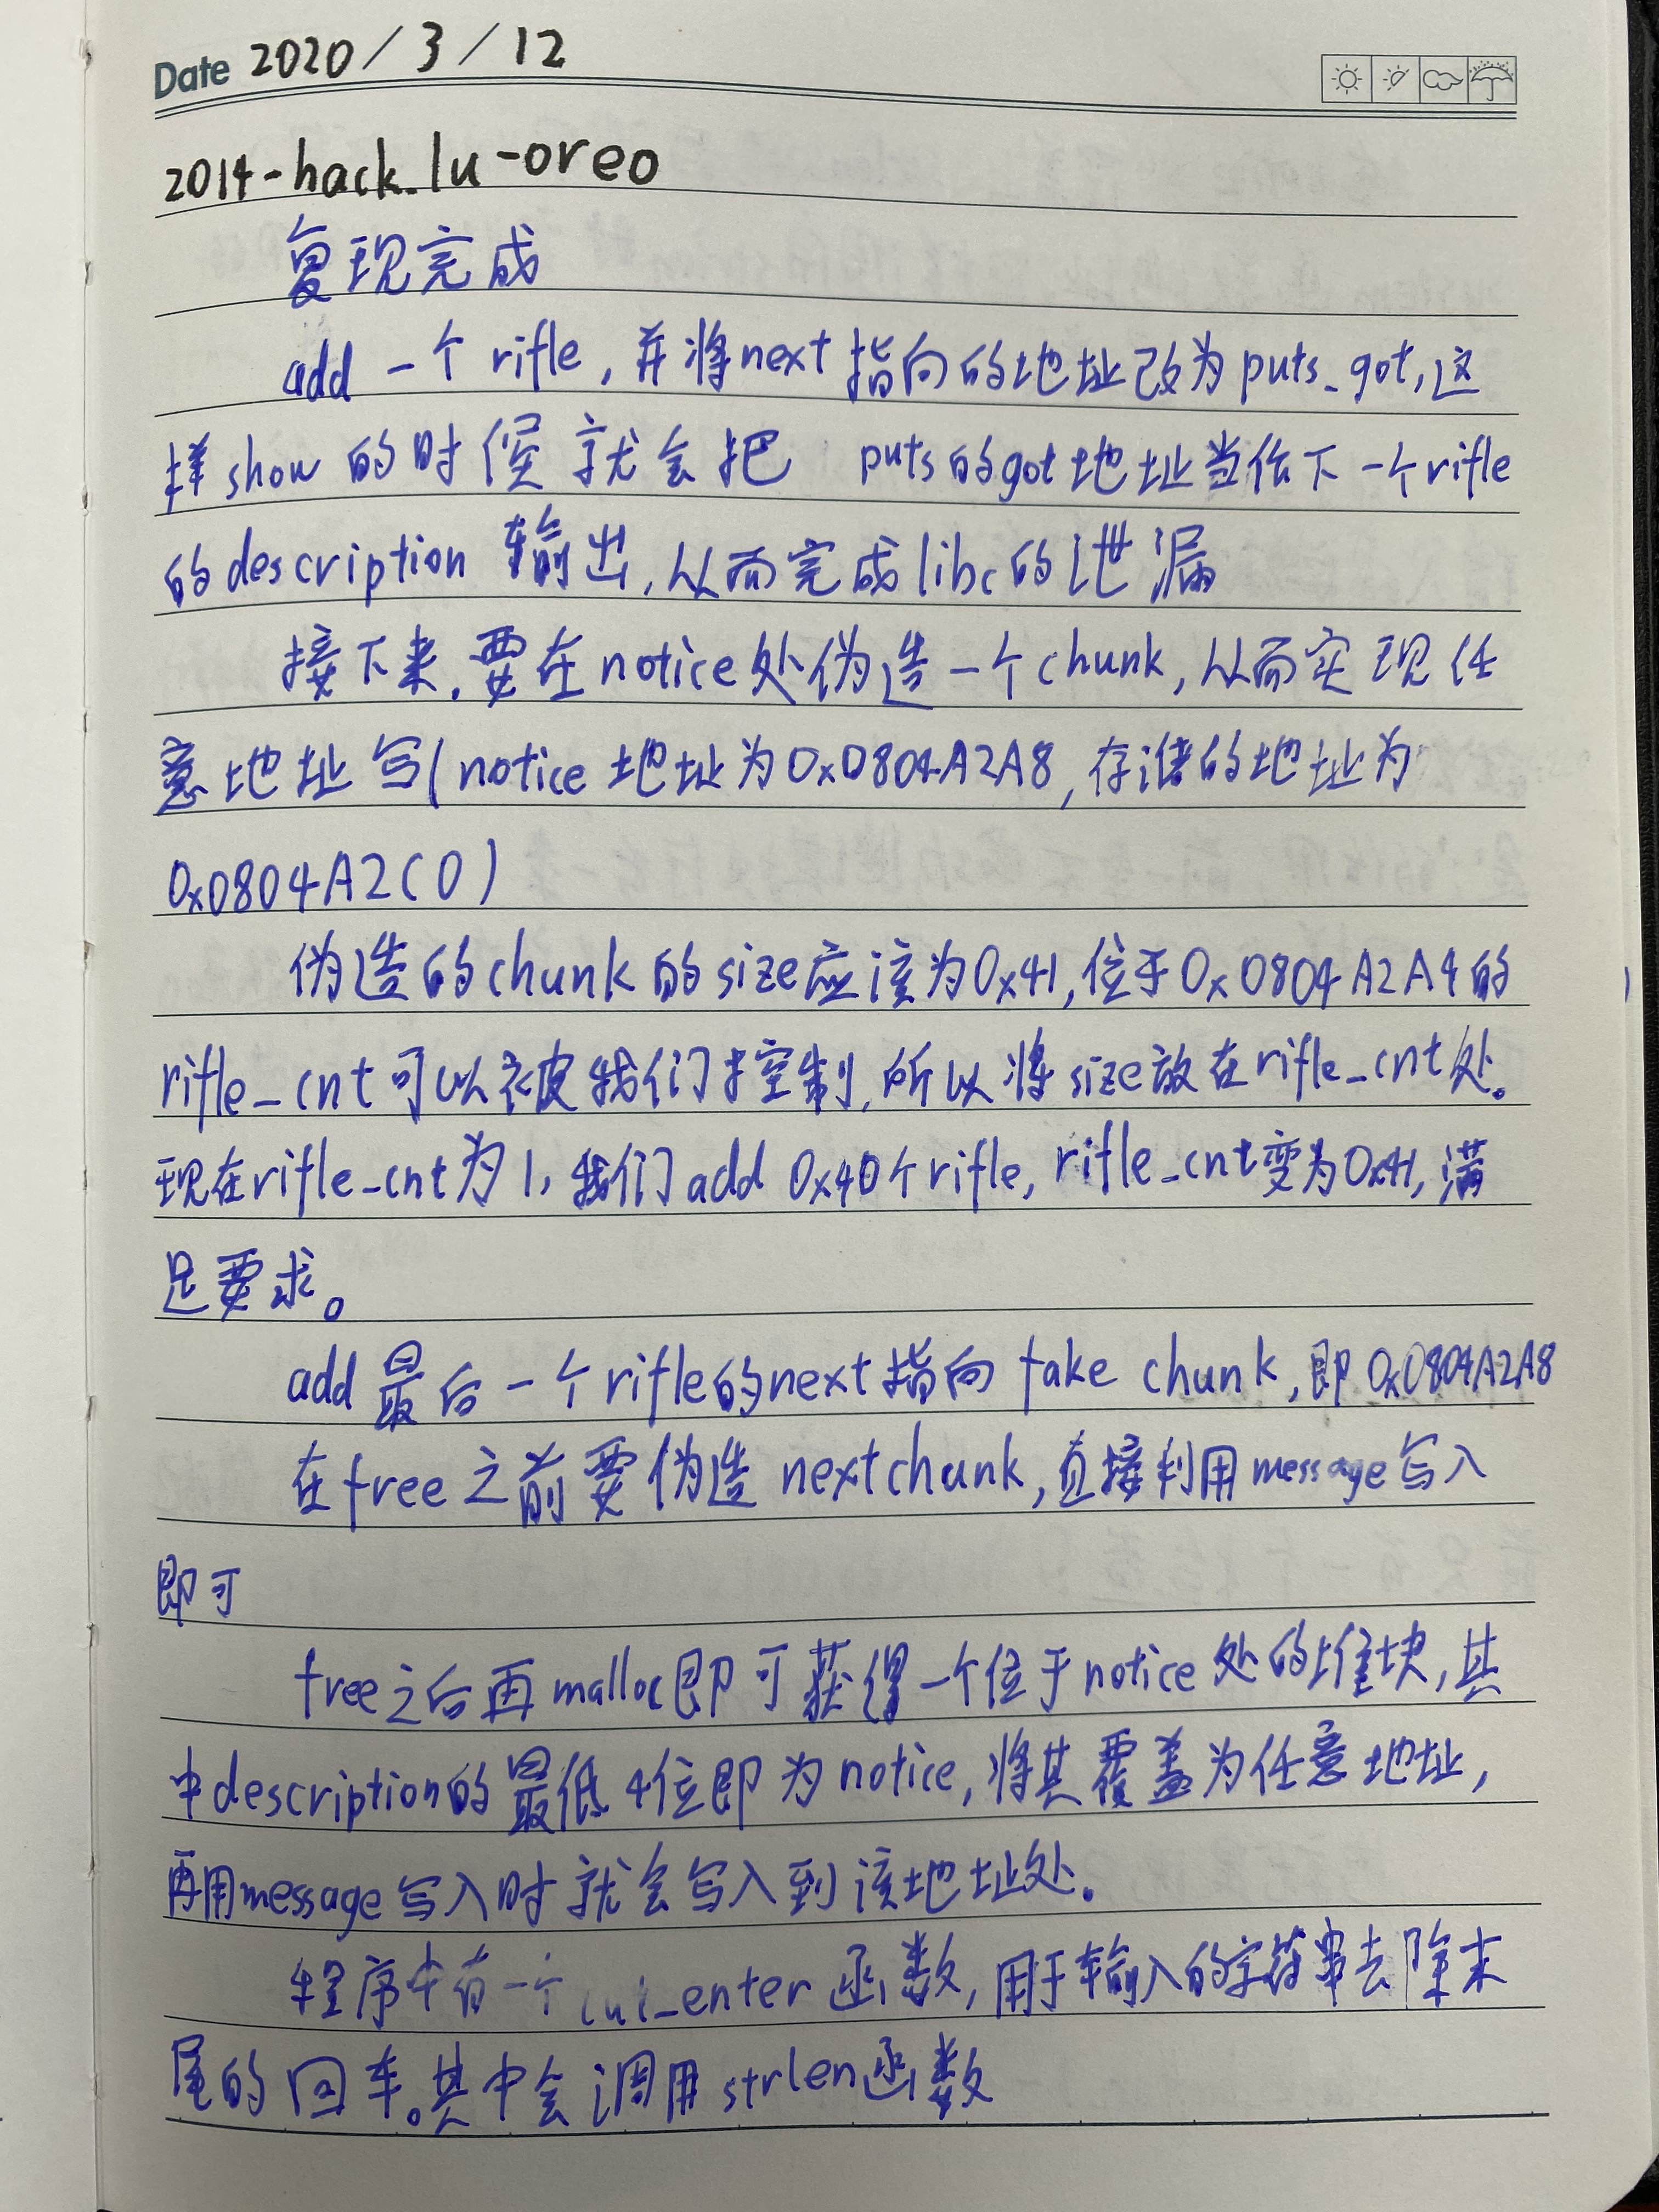 Date 2020/3/12
2014-hack.lu-oreo
复现完成
add 一个 rifle,并将next指向的地址改为puts_got,这
样show的时候就会把 puts的got地址当作下一个rifle
的description 输出,从而完成libc的泄漏
接下来,要在notice处伪造一个chunk,从而实现任
意地址写(notice地址为0x0804A2A8,存储的地址为
0x0804A2C0)
伪造的chunk的size应该为0x41,位于0x0804A2A4的
rifle_cnt可以被我们控制,所以将size放在rifle_cnt处。
现在rifle_cnt为1,我们add 0x40个rifle,rifle_cnt变为0x41,满
足要求。
add最后一个rifle的next指向 fake chunk,即0x0804A2A8
在free之前要伪造 nextchunk,直接利用message写入
即可
free之后再malloc即可获得一个位于notice处的堆块,其
中description的最低4位即为notice,将其覆盖为任意地址,
再用message写入时就会写入到该地址处。
程序中有一个cut_enter函数,用于输入的字符串去除末
尾的回车。其中会调用strlen函数